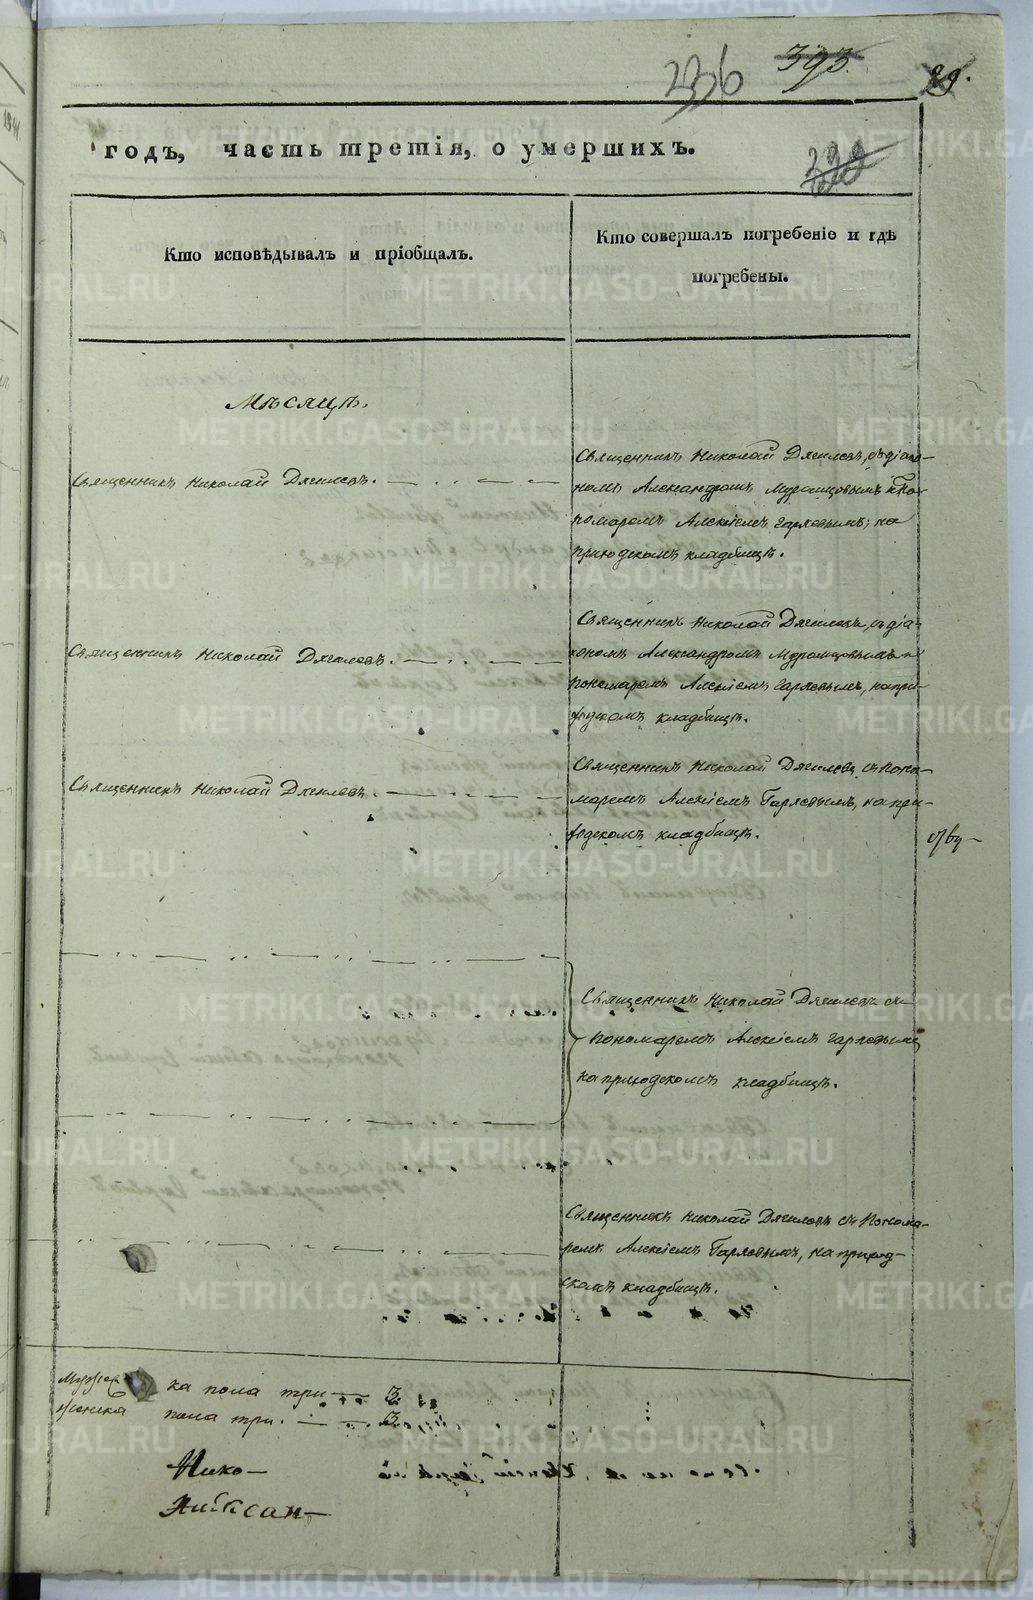 236
393.
29.
годъ, часть третія, о умершихъ.
Кто исповѣдывалъ и пріобщалъ.
Кто совершалъ погребеніе и гдѣ
погребены.
Мѣсяцѣ.
Священникъ Николай Дягилевъ.
Священникъ Николай Дягилевъ, съ діако-
номъ Александромъ Муромцовымъ и По-
номаремъ Алексіемъ Гаряевымъ; на
приходскомъ кладбищѣ.
Священникъ Николай Дягилевъ.
Священникъ Николай Дягилевъ, съ діа-
кономъ Александромъ Муромцовымъ и
пономаремъ Алексіемъ Гаряевымъ, на при-
ходскомъ кладбищѣ.
Священникъ Николай Дягилевъ.
Священникъ Николай Дягилевъ съ поно-
маремъ Алексіемъ Гаряевымъ, на при-
ходскомъ кладбищѣ.
Священникъ Николай Дягилевъ съ
пономаремъ Алексіемъ Гаряевымъ
на приходскомъ кладбищѣ.
Священникъ Николай Дягилевъ съ Понома-
ремъ Алексіемъ Гаряевымъ, на приход-
скомъ кладбищѣ.
ка пола три — 3.
женска пола три. — 3.
Нико-
METRIKI.GASO-URAL.RU